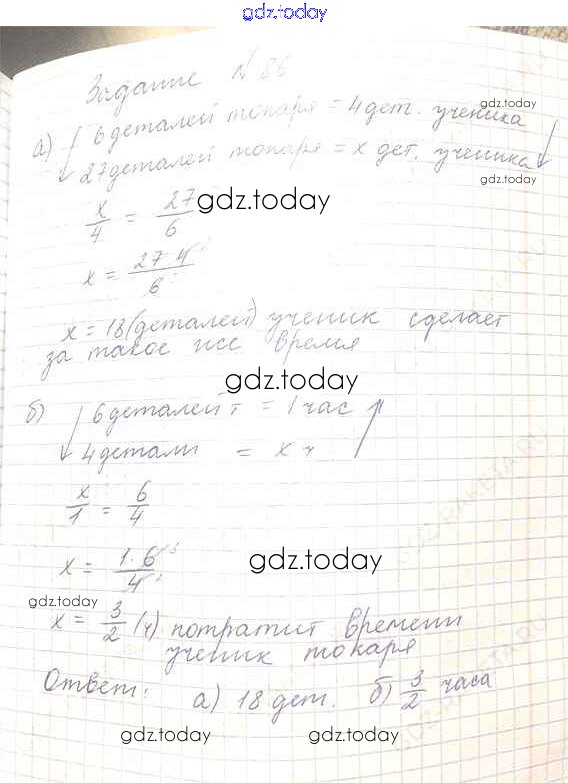 gdz.today
Задание №86
gdz.today
а) 6 деталей токаря = 4 дет. ученика
27 деталей токаря = х дет. ученика
gdz.today
x/4 = 27/6
gdz.today
x = 27·4/6
x = 18 (деталей) ученик сделает
за такое же время
gdz.today
б) 6 деталей т = 1 час
4 детали = х ч
x/1 = 6/4
x = 1·6/4
gdz.today
gdz.today
x = 3/2 (ч) потратит времени
ученик токаря
Ответ: а) 18 дет. б) 3/2 часа
gdz.today gdz.today